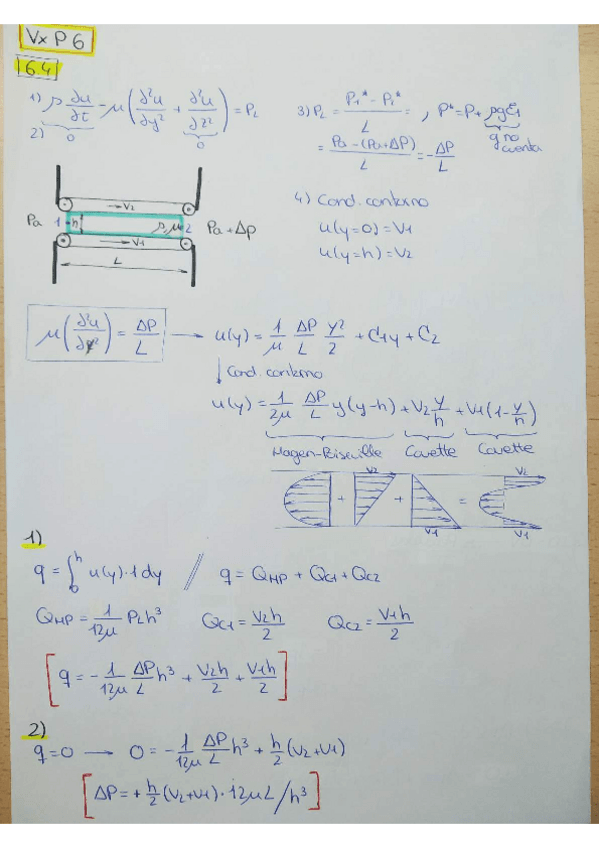 Vx P 6
6.4
1) ρ ∂u/∂t - μ(∂²u/∂y² + ∂²u/∂z²) = PL
2) 0 0
3) PL = (P1* - P1*)/L = , P* = P + ρgξ1
g no cuenta
= (Pa - (Pa+ΔP))/L = -ΔP/L
4) Cond. contorno
u(y=0) = V1
u(y=h) = V2
→ V2
Pa 1 h ρ, μ 2 Pa + Δp
→ V1
L
μ(∂²u/∂y²) = ΔP/L → u(y) = 1/μ ΔP/L y²/2 + C1y + C2
↓ Cond. contorno
u(y) = 1/2μ ΔP/L y(y-h) + V2 y/h + V1(1 - y/h)
Hagen-Poiseuille Couette Couette
V2 V2
+ + =
V1 V1
1)
q = ∫₀ʰ u(y)·1 dy // q = QHP + QC1 + QC2
QHP = 1/12μ PL h³ QC1 = V2h/2 QC2 = V1h/2
[q = - 1/12μ ΔP/L h³ + V2h/2 + V1h/2]
2)
q = 0 → 0 = - 1/12μ ΔP/L h³ + h/2 (V2 + V1)
[ΔP = + h/2 (V2 + V1) · 12μL/h³]